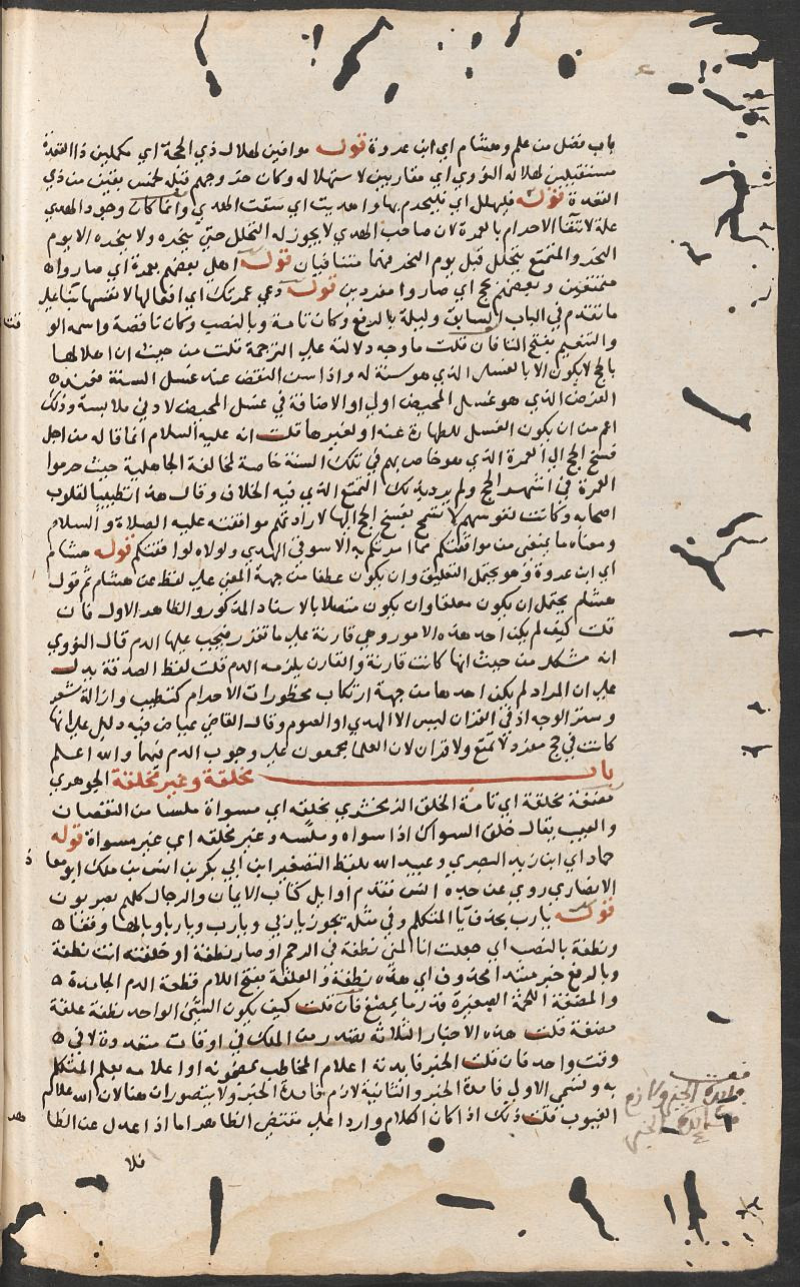 باب فضل من علم وهشام اي ابن عروة قوله موافين لهلال ذي الحجة اي مكملين ذا القعدة
مستقبلين لهلاله النووي اي مقاربين لاستهلاله وكان خروجهم قبله لخمس بقين من ذي
القعدة قوله فليهلل اي فليحرم بها واهديت اي سقت الهدي وانما كان وجود الهدي
علة لانتفا الاحرام بالعمرة لان صاحب الهدي لا يجوز له التحلل حتي ينحره ولا ينحره الا يوم
النحر والمتمتع يتحلل قبل يوم النحر فهما متنافيان قوله اهل بعضهم بعمرة اي صاروا
متمتعين وبعضهم بحج اي صاروا مفردين قوله دعي عمرتك اي افعالها لا نفسها بنا علي
ما تقدم في الباب السابق وليلة بالرفع وكان تامة وبالنصب وكان ناقصة واسمه الو
والتنعيم بفتح التا فان قلت ما وجه دلالته علي الترجمة قلت من حيث ان اهلالها
بالحج لا يكون الا بالغسل الذي هو سنة له واذا سن النقض عند غسل السنة فعند
الفرض الذي هو غسل المحيض اولي او الاضافة في غسل المحيض لادني ملابسة وذلك
اعم من ان يكون الغسل للطهارة عنه او لغيرها قلت انه عليه السلام انما قاله من اجل
فسخ الحج الي العمرة الذي هو خاص بهم في تلك السنة خاصة لمخالفة الجاهلية حيث حرموا
العمرة في اشهر الحج ولم يرد بذلك التمتع الذي فيه الخلاف وقال هذا تطييبا لقلوب
اصحابه وكانت نفوسهم لا تسمح بفسخ الحج اليها لارادتهم موافقته عليه الصلاة والسلام
ومعناه ما يمنعني من موافقتكم مما امرتكم به الا سوقي الهدي ولولاه لوافقتكم قوله هشام
اي ابن عروة وهو يحتمل التعليق وان يكون عطفا من جهة المعني علي لفظ عن هشام ثم قول
هشام يحتمل ان يكون معلقا وان يكون متصلا بالاسناد المذكور والظاهر الاول فان
قلت كيف لم يكن احد هذه الامور وهي قارنة علي ما تقرر فيجب عليها الدم قال النووي
انه مشكل من حيث انها كانت قارنة والقارن يلزمه الدم قلت لفظ الصدقة يدل
علي ان المراد لم يكن احدها من جهة ارتكاب محظورات الاحرام كتطيب وازالة شعر
وستر الوجه اذ في القران ليس الا الهدي او الصوم وقال القاضي عياض فيه دليل علي انها
كانت في حج مفرد لا تمتع ولا قران لان العلما مجمعون علي وجوب الدم فيهما والله اعلم
باب مخلقة وغير مخلقة الجوهري
مضغة مخلقة اي تامة الخلق الزمخشري مخلقة اي مسواة ملسا من النقصان
والعيب يقال خلق السواك اذا سواه وملسه وغير مخلقة اي غير مسواة قوله
حماد اي ابن زيد البصري وعبيد الله بلفظ التصغير ابن ابي بكر بن انس بن ملك ابو معا
الانصاري روي عن جده انس تقدم اوايل كتاب الايمان والرجال كلهم بصريون
قوله يا رب بحذف يا المتكلم وفي مثله يجوز يا ربي ويا رب ويا ربا وبالها وقفا
ونطفة بالنصب اي جعلت انا المني نطفة في الرحم او صار نطفة او خلقته انت نطفة
وبالرفع خبر مبتدا محذوف اي هذه نطفة والعلقة بفتح اللام قطعة الدم الجامدة
والمضغة اللحمة الصغيرة قدر ما يمضغ فان قلت كيف يكون الشيئ الواحد نطفة علقة
مضغة قلت هذه الاخبار الثلاثة تصدر من الملك في اوقات متعددة لا في
وقت واحد فان قلت الخبر فايدته اعلام المخاطب بمضمونه او اعلامه بعلم المتكلم
به وتسمي الاولي فايدة الخبر والثانية لازم فايدة الخبر ولا يتصوران هنا لان الله علام
الغيوب قلت ذلك اذا كان الكلام واردا علي مقتضي الظاهر اما اذا عدل عن الظا
فلا
فايدة الخبر ولازم
فايدة الخبر